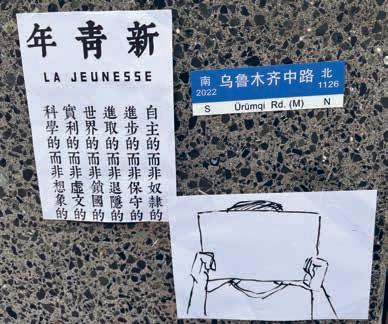 新青年
LA JEUNESSE
自主的而非奴隸的
進步的而非保守的
進取的而非退隱的
世界的而非鎖國的
實利的而非虛文的
科學的而非想象的
南 乌鲁木齐中路 北
2022 1126
S Ürümqi Rd. (M) N